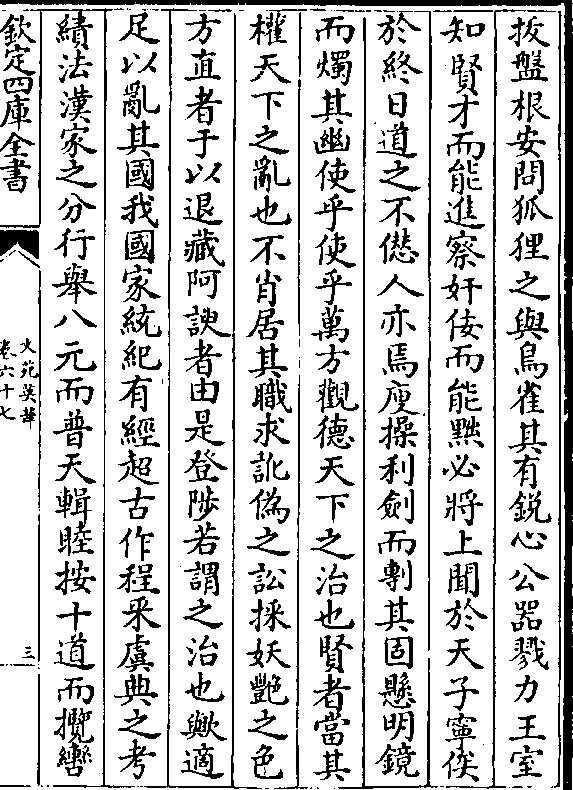 扳盤根安問狐狸之與鳥雀其有鋭心公器戮力王室
知賢才而能進察奸佞而能黜必將上聞於天子寧俟
於終日道之不愆人亦焉廋操利劍而剸其固懸明鏡
而燭其幽使乎使乎萬方觀德天下之治也賢者當其
權天下之亂也不肖居其職求訛偽之訟採妖艷之色
方直者于以退藏阿諛者由是登陟若謂之治也歟適
足以亂其國我國家統紀有經超古作程采虞典之考
績法漢家之分行舉八元而普天輯睦按十道而攬轡
欽定四庫全書
文苑英華
卷六十七
三